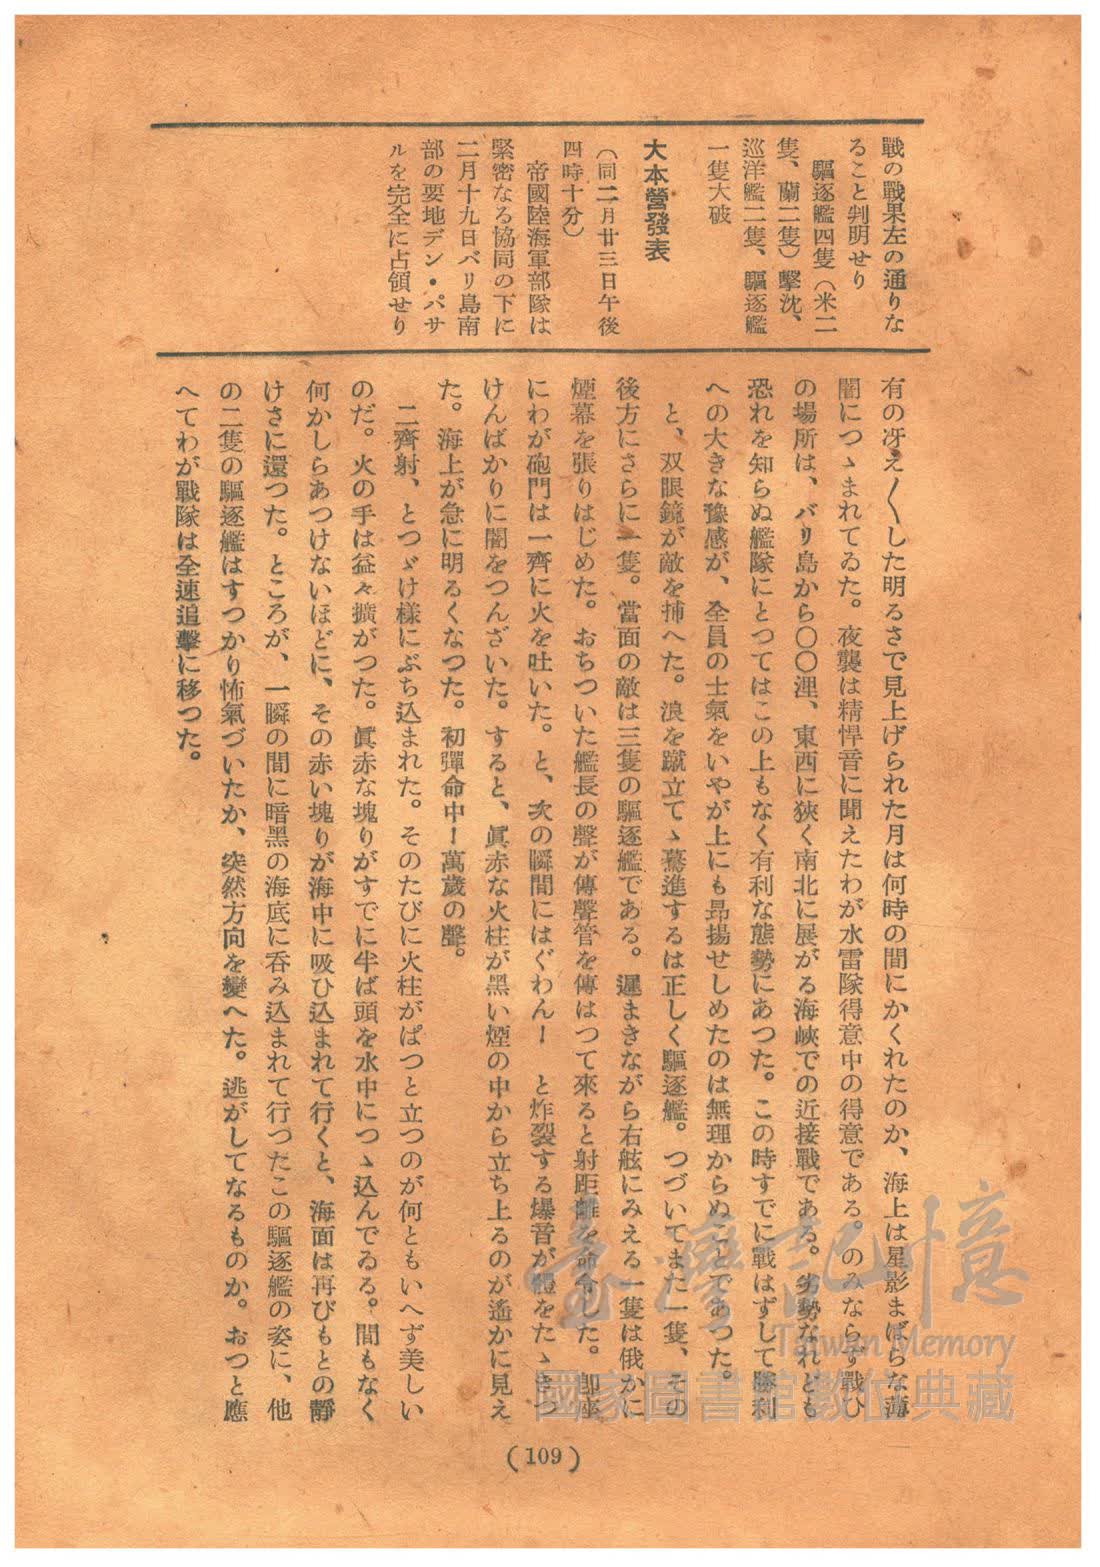 戰の戰果左の通りな
ること判明せり
驅逐艦四隻（米二
隻、蘭二隻）擊沈、
巡洋艦二隻、驅逐艦
一隻大破
大本營發表
（同二月廿三日午後
四時十分）
帝國陸海軍部隊は
緊密なる協同の下に
二月十九日バリ島南
部の要地デン・パサ
ルを完全に占領せり
有の冴え〳〵した明るさで見上げられた月は何時の間にかくれたのか、海上は星影まばらな薄
闇につゝまれてゐた。夜襲は精悍音に聞えたわが水雷隊得意中の得意である。のみならず戰ひ
の場所は、バリ島から〇〇浬、東西に狹く南北に展がる海峽での近接戰である。劣勢なれども
恐れを知らぬ艦隊にとつてはこの上もなく有利な態勢にあつた。この時すでに戰はずして勝利
への大きな豫感が、全員の士氣をいやが上にも昂揚せしめたのは無理からぬことであつた。
と、双眼鏡が敵を捕へた。浪を蹴立てゝ驀進するは正しく驅逐艦。つづいてまた一隻、その
後方にさらに一隻。當面の敵は三隻の驅逐艦である。遲まきながら右舷にみえる一隻は俄かに
煙幕を張りはじめた。おちついた艦長の聲が傳聲管を傳はつて來ると射距離を命令した。卽座
にわが砲門は一齊に火を吐いた。と、次の瞬間にはぐわんー　と炸裂する爆音が體をたゝきつ
けんばかりに闇をつんざいた。すると、眞赤な火柱が黑い煙の中から立ち上るのが遙かに見え
た。海上が急に明るくなつた。初彈命中！萬歲の聲。
二齊射、とつゞけ樣にぶち込まれた。そのたびに火柱がぱつと立つのが何ともいへず美しい
のだ。火の手は益々擴がつた。眞赤な塊りがすでに半ば頭を水中につゝ込んでゐる。間もなく
何かしらあつけないほどに、その赤い塊りが海中に吸ひ込まれて行くと、海面は再びもとの靜
けさに還つた。ところが、一瞬の間に暗黑の海底に吞み込まれて行つたこの驅逐艦の姿に、他
の二隻の驅逐艦はすつかり怖氣づいたか、突然方向を變へた。逃がしてなるものか。おつと應
へてわが戰隊は全速追擊に移つた。
(109)
臺灣記憶
Taiwan Memory
國家圖書館數位典藏